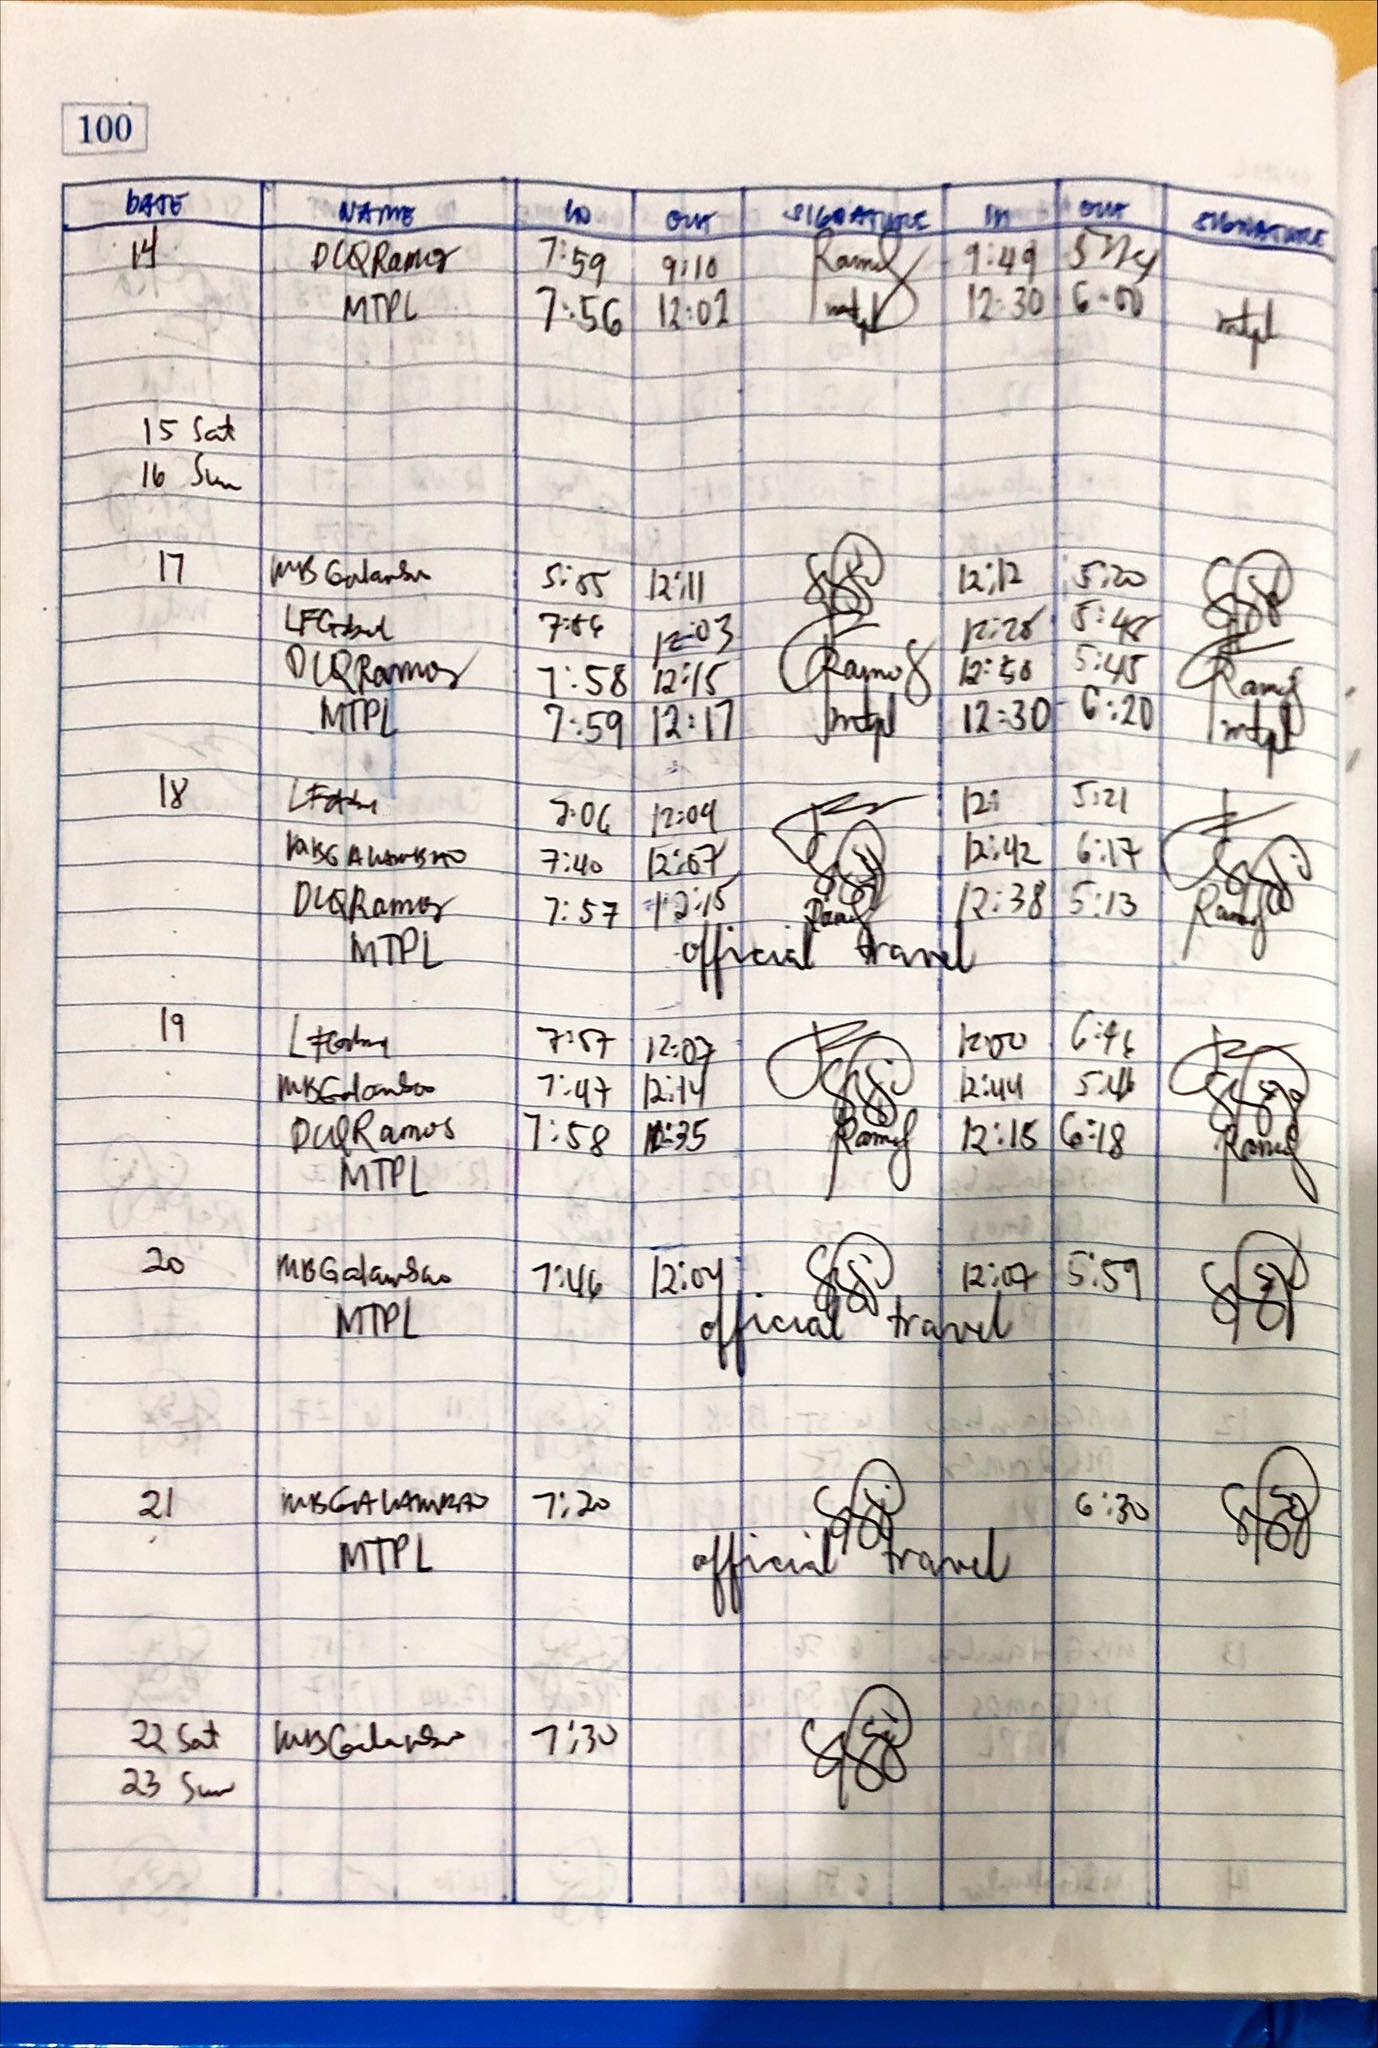 100
DATE NAME IN OUT SIGNATURE IN OUT SIGNATURE
14 DCQRamos 7:59 9:10 Ramos 9:49
MTPL 7:56 12:02 mtpl 12:30 6:00 mtpl
15 Sat
16 Sun
17 MBGalambao 5:55 12:11 12:12 5:20
12:03 5:48
DCQRamos 7:58 12:15 Ramos 12:50 5:45 Ramos
MTPL 7:59 12:17 mtpl 12:30 6:20 mtpl
18 12:09 12: 5:21
MBGALAMBAO 7:40 12:07 12:42 6:17
DCQRamos 7:57 12:15 Ramos 12:38 5:13 Ramos
MTPL official travel
19 7:57 12:07 12:00 6:46
MBGalambao 7:47 12:14 12:44 5:46
DCQRamos 7:58 12:35 Ramos 12:15 6:18 Ramos
MTPL
20 MBGalambao 7:46 12:04 12:07 5:59
MTPL official travel
21 MBGALAMBAO 7:20 6:30
MTPL official travel
22 Sat MBGalambao 7:30
23 Sun